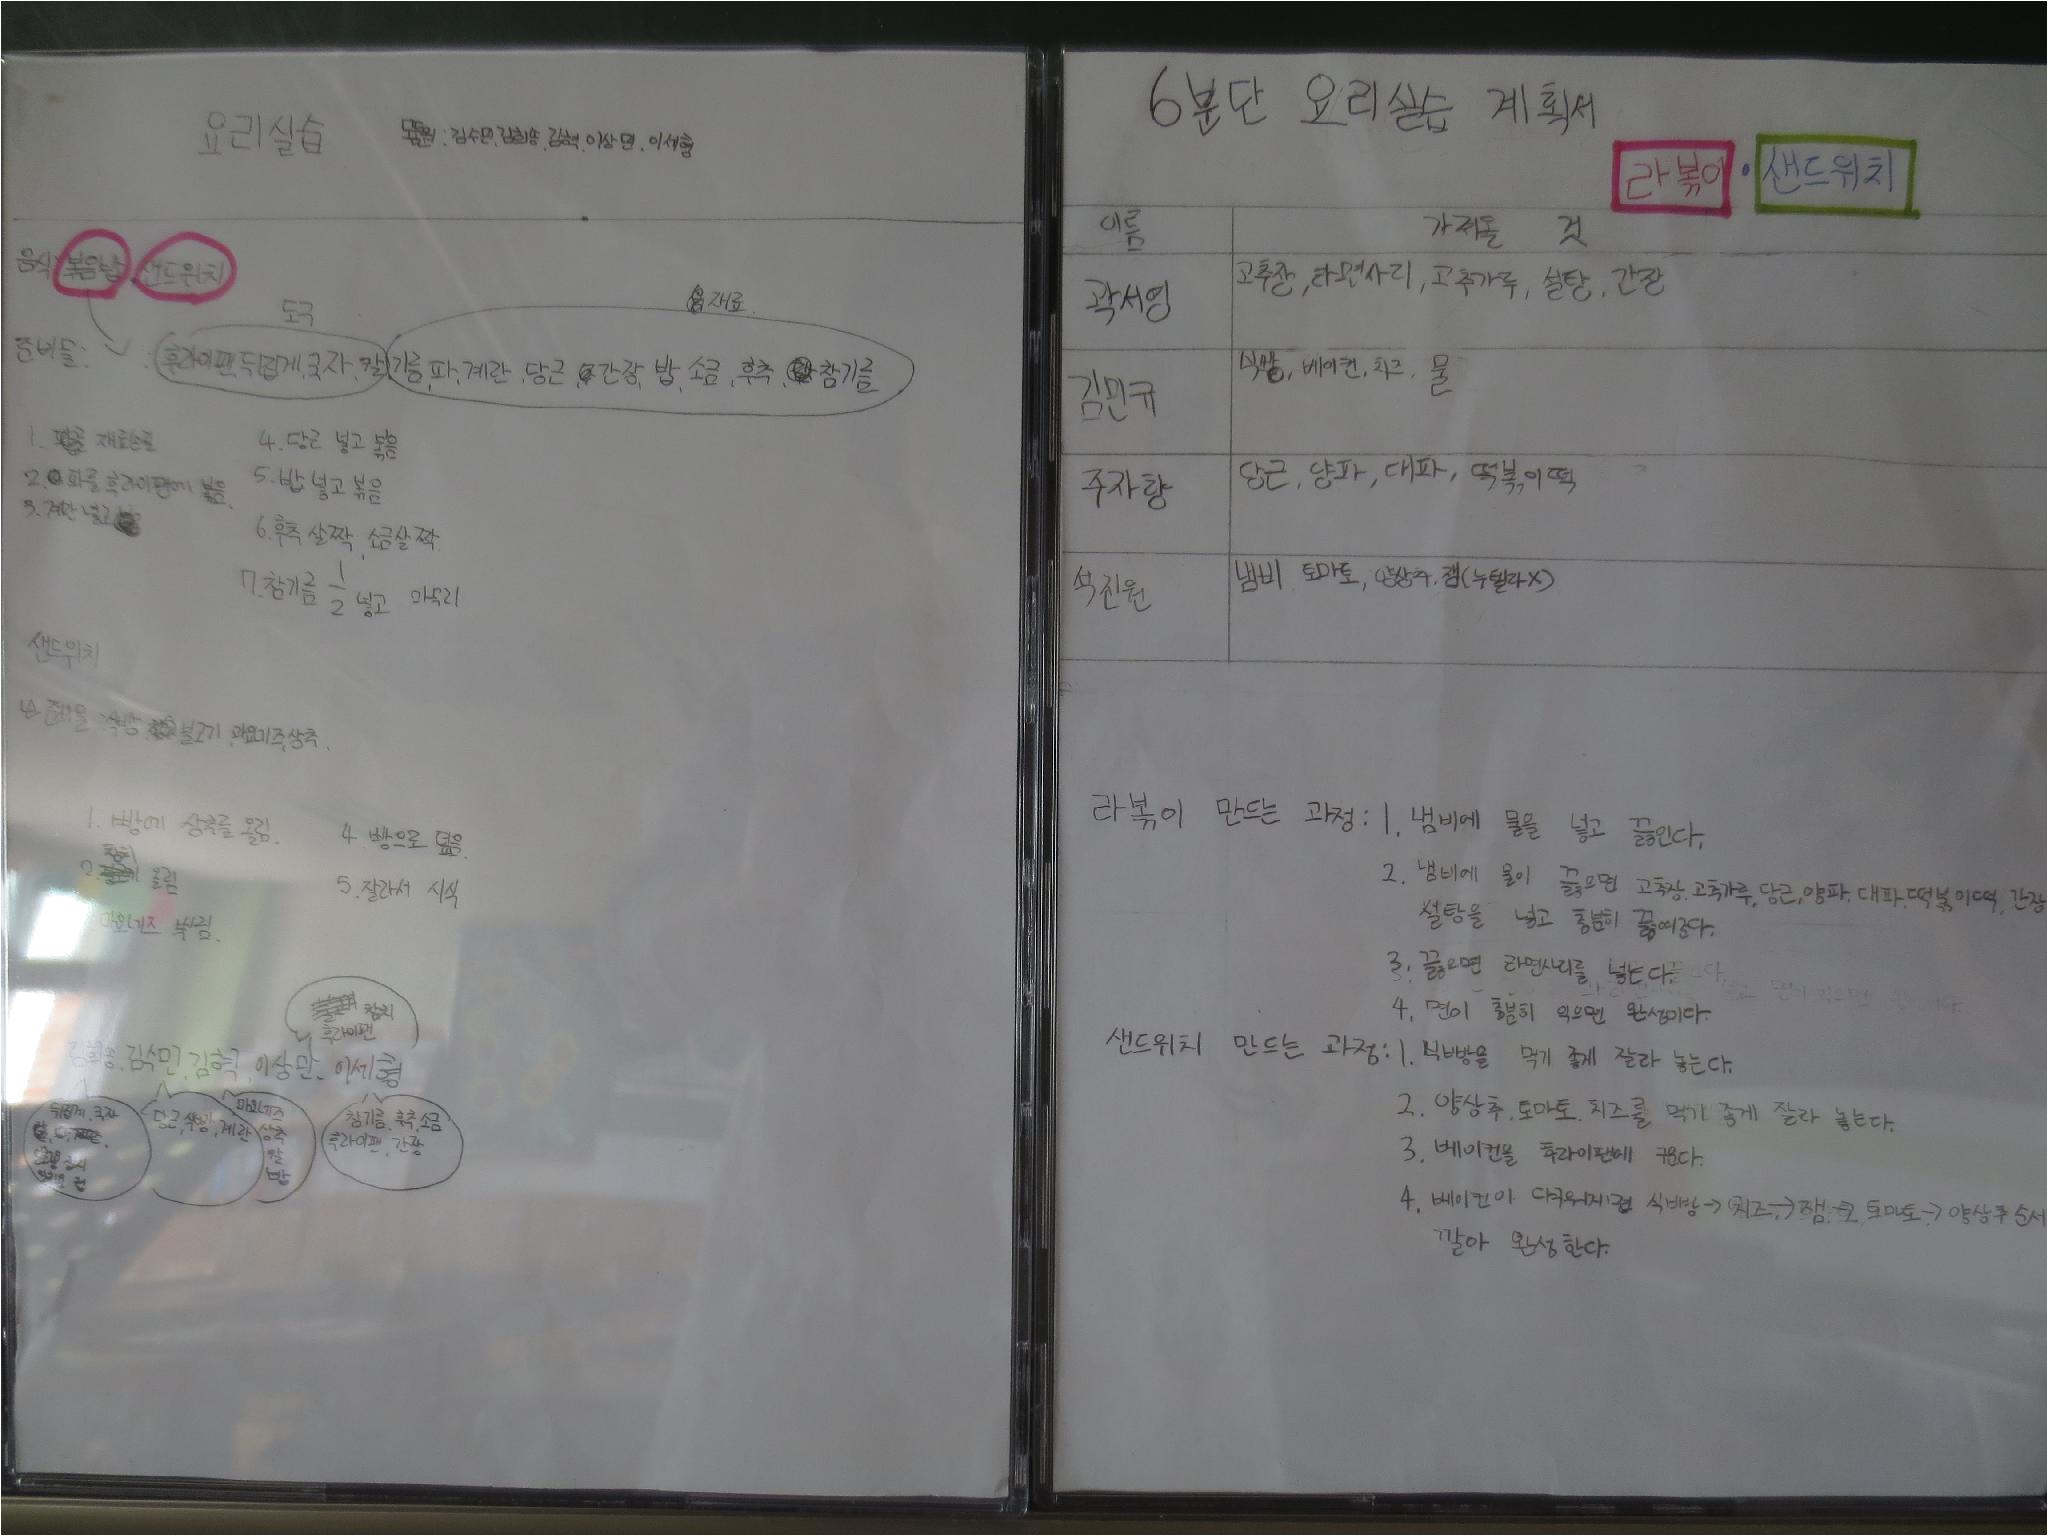 요리실습
모둠원 : 김수민, 김희송, 김혁, 이상민, 이세형
음식: 볶음밥, 샌드위치
도구
재료
준비물: 후라이팬, 뒤집게, 국자, 칼, 기름, 파, 계란, 당근, 간장, 밥, 소금, 후추, 참기름
1. 재료손질
2. 파를 후라이팬에 볶음.
3. 계란 넣고
4. 당근 넣고 볶음
5. 밥 넣고 볶음
6. 후추 살짝, 소금살짝
7. 참기름 1/2 넣고 마무리
샌드위치
준비물 식빵, 불고기, 마요네즈, 상추.
1. 빵에 상추를 올림.
2. 참치 올림
마요네즈 뿌림.
4. 빵으로 덮음.
5. 잘라서 시식
참치
후라이팬
김희송, 김수민, 김혁, 이상민, 이세형
뒤집게, 국자
당근, 식빵, 계란
마요네즈
상추
칼
밥
참기름, 후추, 소금
후라이팬, 간장
6분단 요리실습 계획서
라볶이 · 샌드위치
이름 가져올 것
곽서영 고추장, 라면사리, 고추가루, 설탕, 간장
김민규 식빵, 베이컨, 치즈, 물
주자향 당근, 양파, 대파, 떡볶이떡
석진원 냄비 토마토, 양상추, 잼(누텔라X)
라볶이 만드는 과정: 1. 냄비에 물을 넣고 끓인다.
2. 냄비에 물이 끓으면 고추장, 고추가루, 당근, 양파, 대파, 떡볶이떡, 간장
설탕을 넣고 충분히 끓여준다.
3. 끓으면 라면사리를 넣는다.
4. 면이 충분히 익으면 완성이다.
샌드위치 만드는 과정: 1. 식빵을 먹기 좋게 잘라 놓는다.
2. 양상추, 토마토, 치즈를 먹기 좋게 잘라 놓는다.
3. 베이컨을 후라이팬에 굽는다.
4. 베이컨이 다구워지면 식빵→치즈→잼→토마토→양상추 순서
깔아 완성한다.